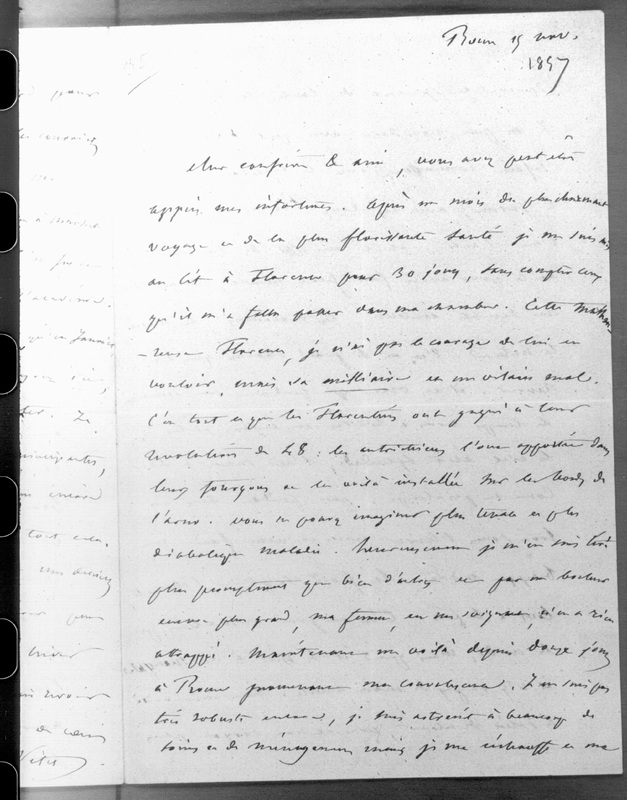 Rome 15 nov.
1857
cher confrère & ami, vous avez peut être
appris mes infortunes. Après un mois du plus charmant
voyage et de la plus florissante santé je me suis mis
au lit à Florence pour 30 jours, sans compter ceux
qu'il m'a fallu passer dans ma chambre. Cette malheu-
-reuse Florence, je n'ai pas le courage de lui en
vouloir, mais sa milliaire est un vilain mal.
C'est tout ce que les Florentins ont gagné à leur
révolution de 48 : les autrichiens l'ont apportée dans
leurs fourgons et la voilà installée sur les bords de
l'arno. vous ne pouvez imaginer plus tenace et plus
diabolique maladie. heureusement je m'en suis tiré
plus promptement que bien d'autres et par un bonheur
encore plus grand, ma femme, en me soignant, n'en a rien
attrappé. Maintenant me voilà depuis douze jours
à Rome promenant ma convalescence. Je ne suis pas
très robuste encore, je suis astreint à beaucoup de
soins et de ménagemens mais je me réchauffe et me
pour
Janvier
Le
tout cela.
pour
Vitet